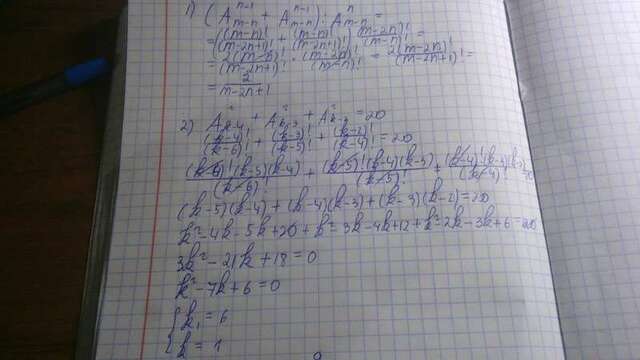 1) (A_{m-n}^{n-1} + A_{m-n}^{n-1}) : A_{m-n}^{n} =
= ((m-n)!/(m-2n+1)! + (m-n)!/(m-2n+1)!) · (m-2n)!/(m-n)! =
= 2(m-n)!/(m-2n+1)! · (m-2n)!/(m-n)! = 2(m-2n)!/(m-2n+1)! =
= 2/(m-2n+1)
2) A_{k-4}^{2} + A_{k-3}^{2} + A_{k-2}^{2} = 20
(k-4)!/(k-6)! + (k-3)!/(k-5)! + (k-2)!/(k-4)! = 20
(k-6)!(k-5)(k-4)/(k-6)! + (k-5)!(k-4)(k-3)/(k-5)! + (k-4)!(k-3)(k-2)/(k-4)! = 20
(k-5)(k-4) + (k-4)(k-3) + (k-3)(k-2) = 20
k²-4k-5k+20+k²-3k-4k+12+k²-2k-3k+6=20
3k²-21k+18=0
k²-7k+6=0
k₁ = 6
k = 1